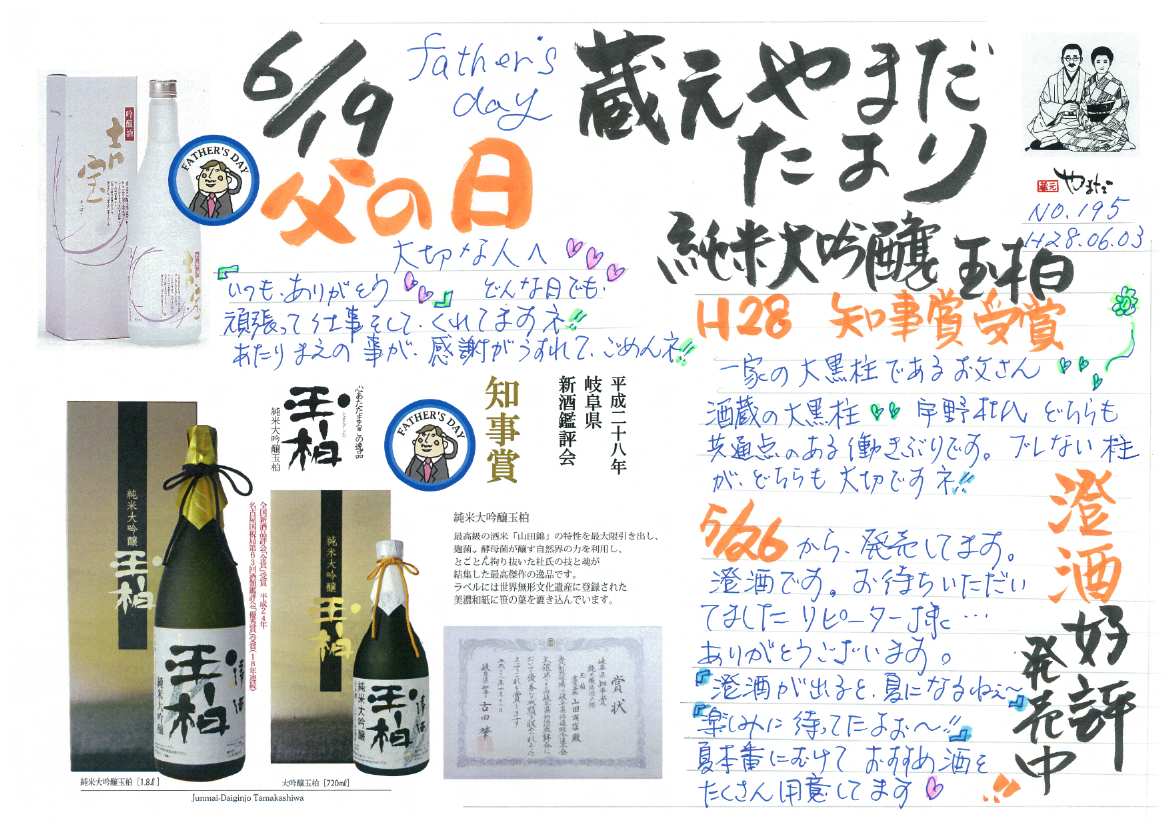 6/19
father's
day
父の日
蔵元やまだ
たより
やまだ
NO.195
H28.06.03
吟醸酒
玉宝
FATHER'S DAY
大切な人へ
『いつも、ありがとう』 どんな日でも、
頑張って仕事をして、くれてますネ!!
あたりまえの事が、感謝がうすれて、ごめんネ!!
純米大吟醸 玉柏
H28 知事賞受賞
一家の大黒柱であるお父さん
酒蔵の大黒柱 宇野杜氏 どちらも
共通点のある働きぶりです。ブレない柱
が、どちらも大切ですネ!!
心あたたまるこの逸品
玉柏
純米大吟醸玉柏
FATHER'S DAY
平成二十八年
岐阜県
新酒鑑評会
知事賞
純米大吟醸玉柏
最高級の酒米「山田錦」の特性を最大限引き出し、
麹菌。酵母菌が醸す自然界の力を利用し、
とことん拘り抜いた杜氏の技と魂が
結集した最高傑作の逸品です。
ラベルには世界無形文化遺産に登録された
美濃和紙に笹の葉を漉き込んでいます。
純米大吟醸
玉柏
全国新酒品評会(金賞)受賞 平成24年
純米大吟醸
玉柏
清酒
玉柏
純米大吟醸
清酒
玉柏
純米大吟醸
賞状
純米大吟醸玉柏 [1.8ℓ]
大吟醸玉柏 [720mℓ]
Junmai-Daiginjo Tamakashiwa
澄酒
好評
発売中!!
5/26から、発売してます。
澄酒です。お待ちいただい
てましたリピーター様に…
ありがとうございます。
『澄酒が出ると、夏になるねぇ〜
『楽しみに待ってたよぉ〜!!』
夏本番にむけて おすすめ酒を
たくさん用意してます